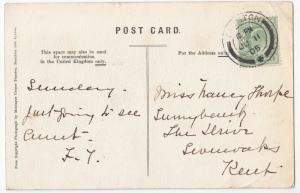 POST CARD.
This space may also be used
for communication
in the United Kingdom only.
For the Address only.
Sunday.
Just going to see
Aunt
F. Y.
Miss Nancy Thorpe
Sunnybank
The Drive
Sevenoaks
Kent